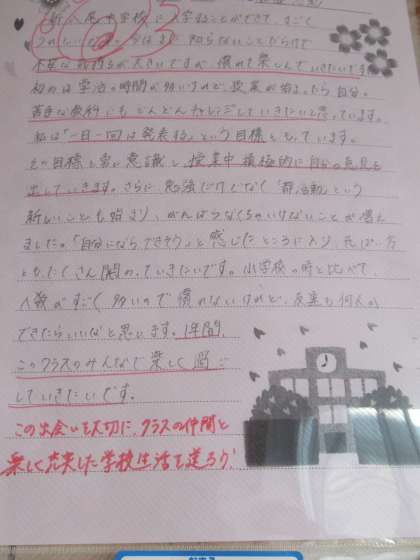 八尾中学校に入学することができて、すごく
うれしい 知らないことだらけで
不安な気持ちが大きいですが、慣れて楽しんでいきたいです。
初めは学活の時間が多いけれど、授業が始まったら自分の
苦手な教科にもどんどんチャレンジしていきたいと思っています。
私は「一日一回は発表する」という目標をもっています。
その目標を常に意識し、授業中積極的に自分の意見を
出していきます。さらに勉強だけでなく「部活動」という
新しいことも始まり、がんばらなくちゃいけないことが増え
ました。「自分にならできそう」と感じたところに入り、先ぱい方
とも、たくさん関わっていきたいです。小学校の時と比べて、
人数がすごく多いので慣れないけれど、友達も何人か
できたらいいなと思います。1年間、
このクラスのみんなで楽しく過ご
していきたいです。
この出会いを大切に、クラスの仲間と
楽しく充実した学校生活を送ろう!